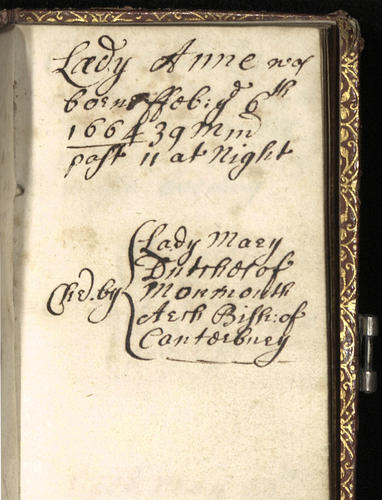 Lady Anne was
borne ffeb: yᵉ 6th
1664 39 Min
past 11 at Night
Chr. by
Lady Mary
Dutches of
Monmouth
Arch Bish: of
Canterbury